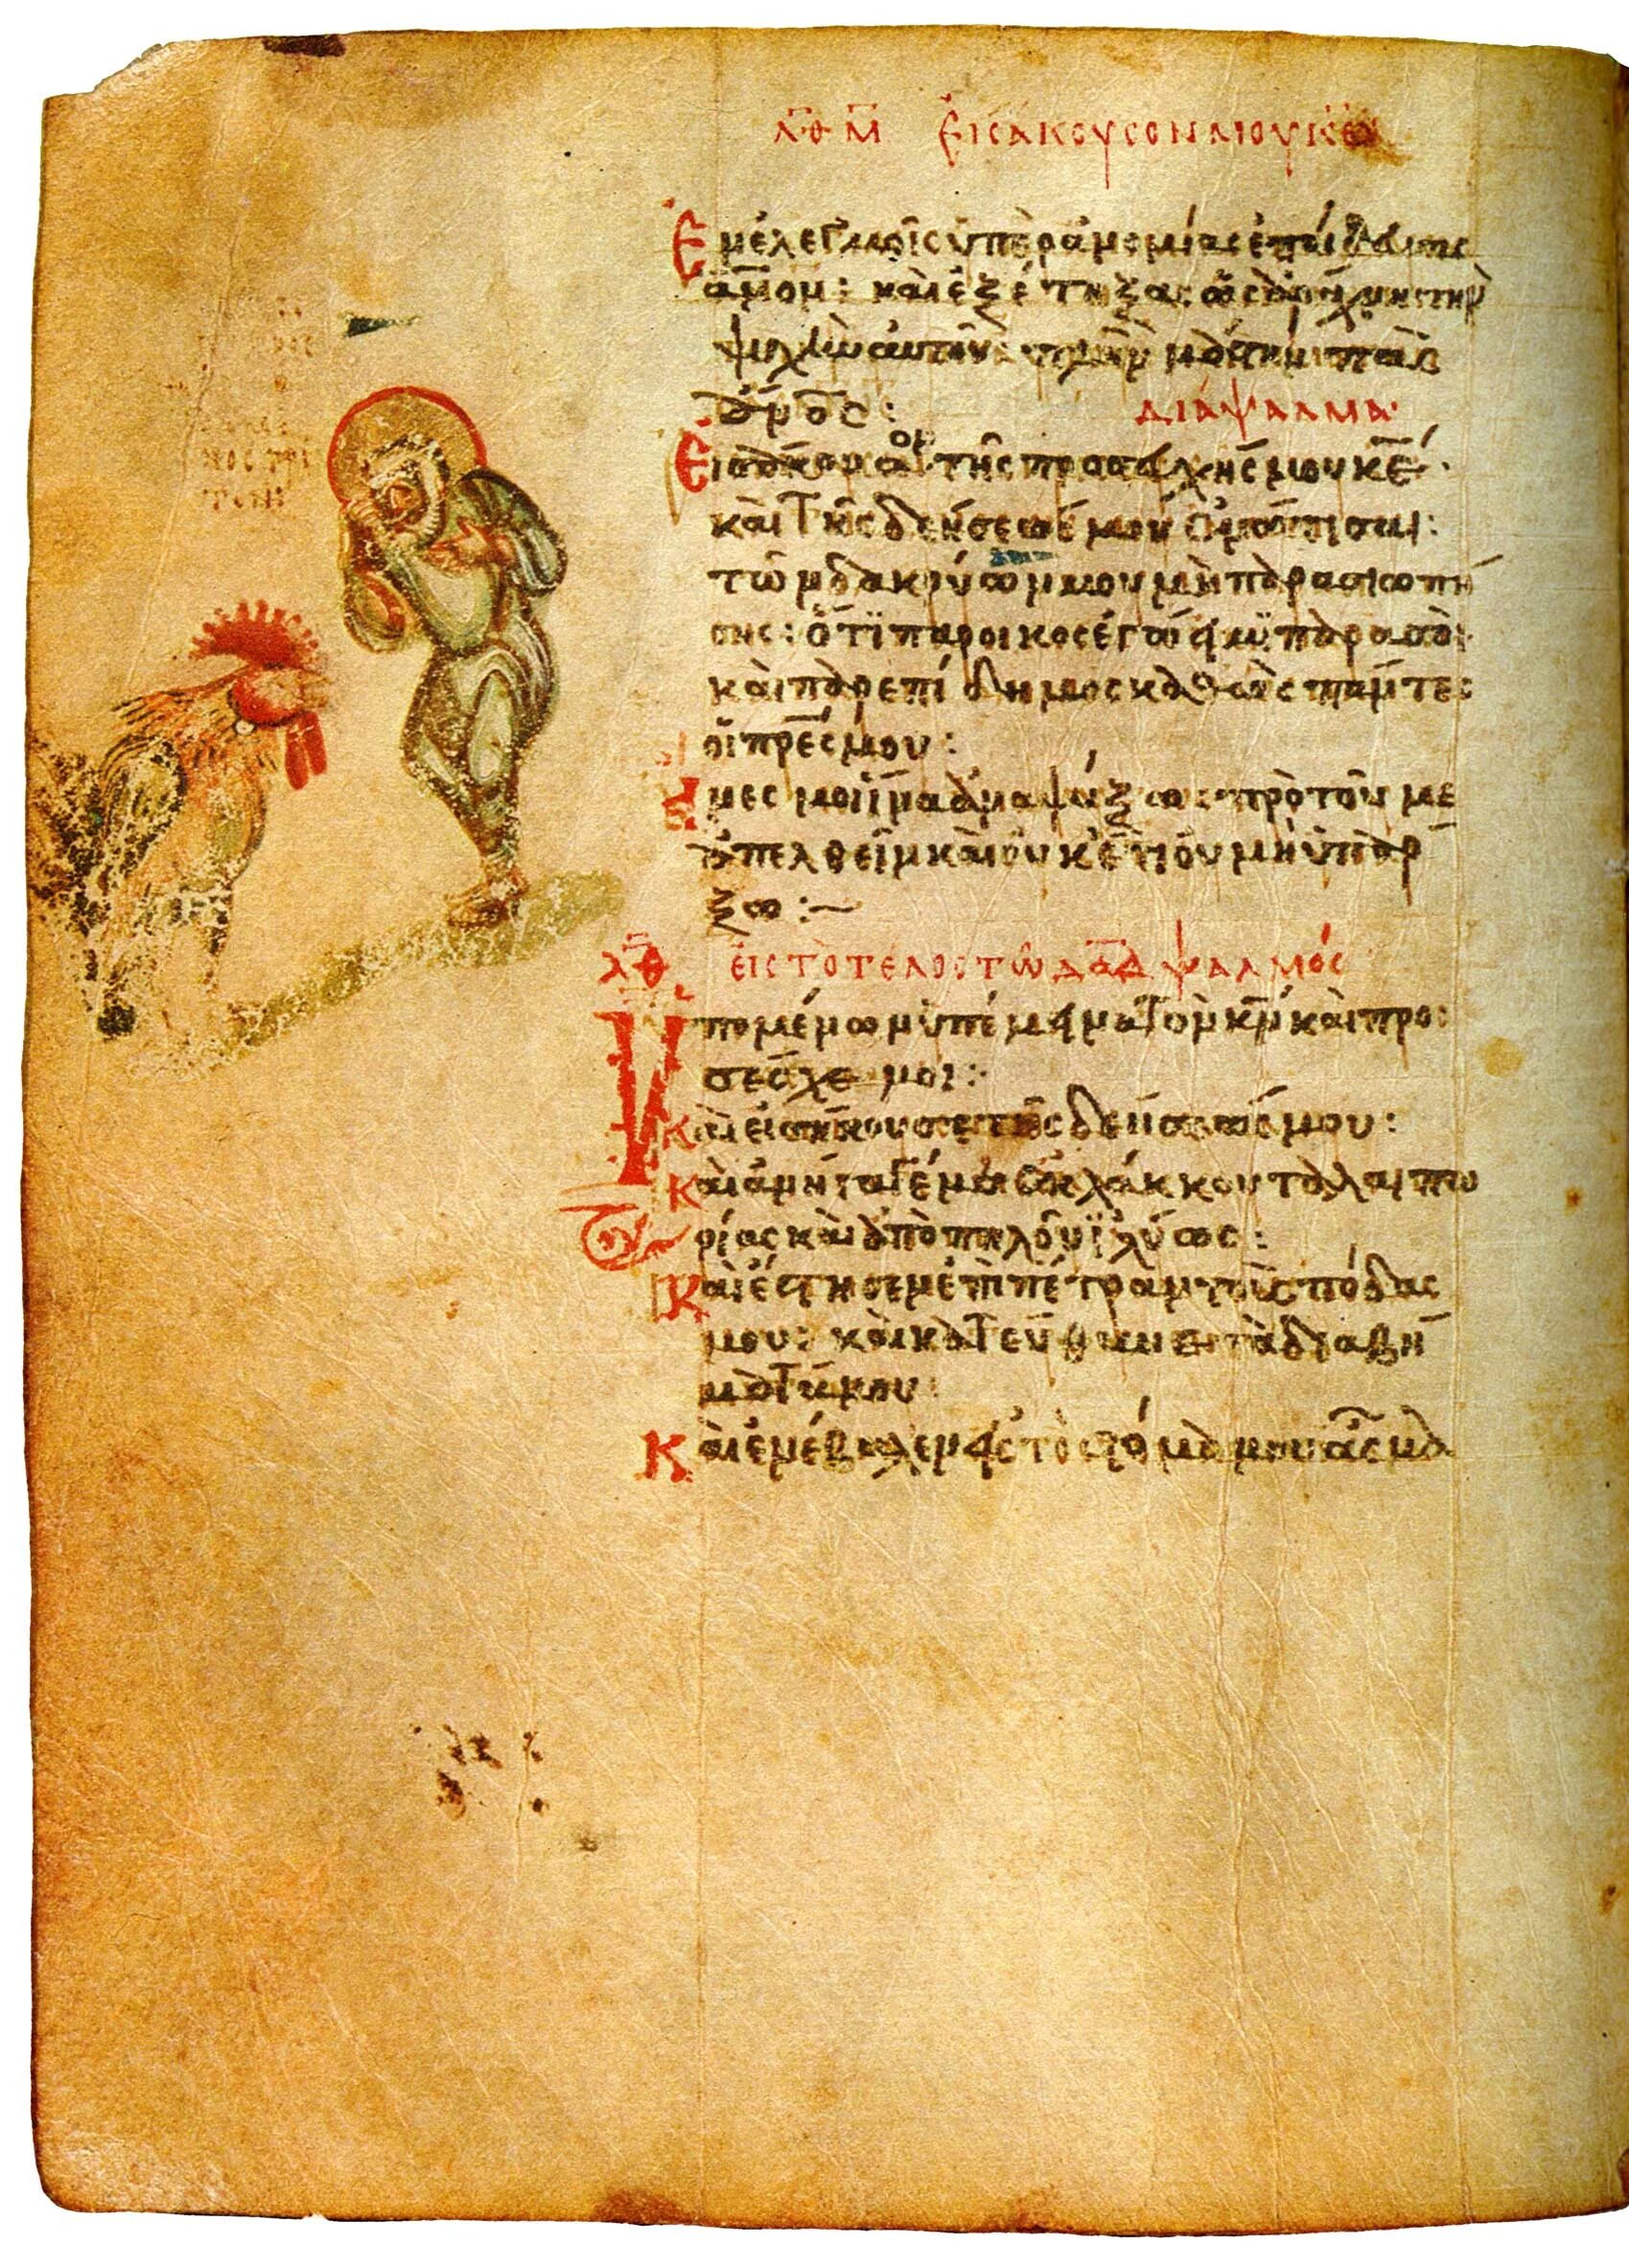 ΛΘ Μ ΕΙΣΑΚΟΥΣΟΝ ΜΟΥ ΚΕ
Ἐν ἐλεγμοῖς ὑπὲρ ἀνομίας ἐπαίδευσας
ἄνον: καὶ ἐξέτηξας ὡς ἀράχνην τὴν
ψυχὴν αὐτοῦ: πλὴν μάτην πᾶς
ἄνος:
ΔΙΑΨΑΛΜΑ
Εἰσάκουσον τῆς προσευχῆς μου κε
καὶ τῆς δεήσεώς μου ἐνώτισαι:
τῶν δακρύων μου μὴ παρασιωπή
σης: ὅτι πάροικος ἐγώ εἰμι παρὰ σοὶ
καὶ παρεπίδημος καθὼς πάντες
οἱ πρες μου:
Ἄνες μοι ἵνα ἀναψύξω πρὸ τοῦ με
ἀπελθεῖν καὶ οὐκέτι οὐ μὴ ὑπάρ
ξω:~
ΛΘ ΕΙΣ ΤΟ ΤΕΛΟΣ ΤΩ ΔΑΔ ΨΑΛΜΟΣ
Ὑπομένων ὑπέμεινα τὸν κν καὶ προ
σέσχε μοι:
Καὶ εἰσήκουσε τῆς δεήσεώς μου:
Καὶ ἀνήγαγέ με ἐκ λάκκου ταλαιπω
ρίας καὶ ἀπὸ πηλοῦ ἰλύος:
Καὶ ἔστησεν ἐπὶ πέτραν τοὺς πόδας
μου: καὶ κατεύθυνε τὰ διαβή
ματά μου:
Καὶ ἐνέβαλεν εἰς τὸ στόμα μου ᾆσμα